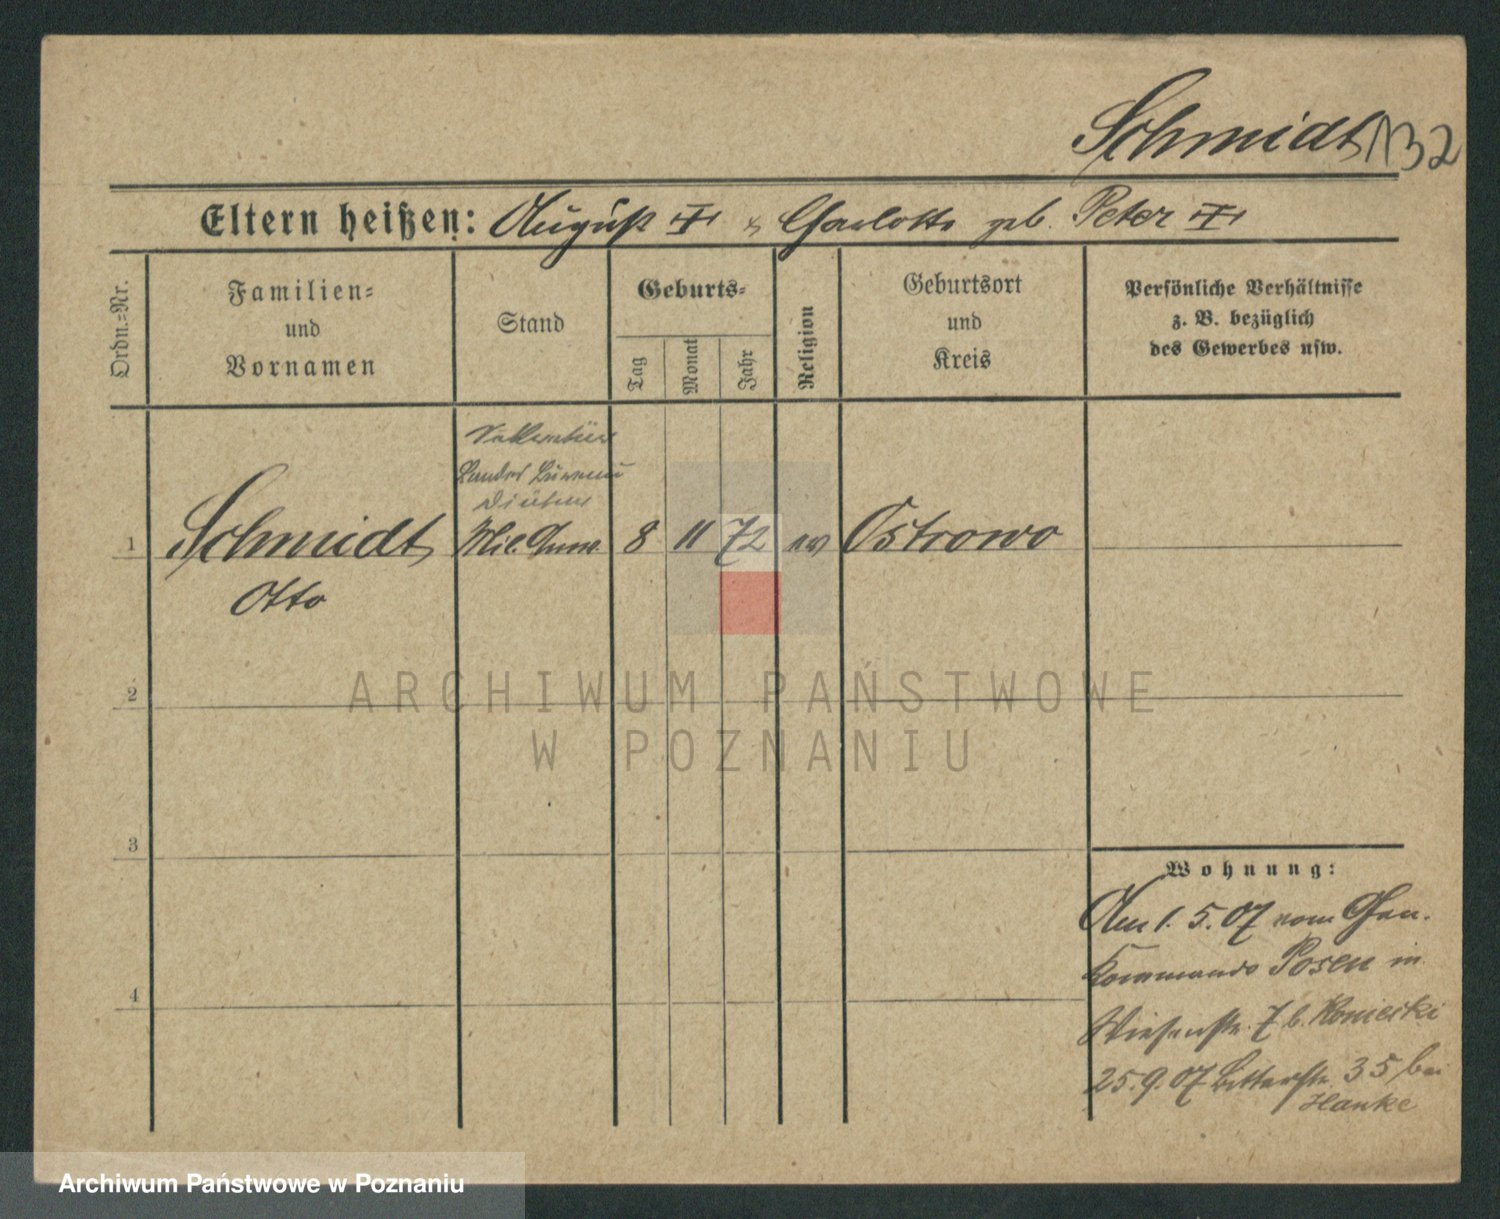 Schmidt 132
Eltern heißen: August & Charlotte geb. Peter
Ordn.=Nr.
Familien=
und
Vornamen
Stand
Geburts=
Tag
Monat
Jahr
Religion
Geburtsort
und
Kreis
Persönliche Verhältnisse
z. B. bezüglich
des Gewerbes usw.
1 Schmidt 8 11 72 ev Ostrowo
Otto
2
3
4
ARCHIWUM PAŃSTWOWE
W POZNANIU
Wohnung:
Am 1. 5. 07 vom Gen.
Kommando Posen in
Wiesenstr. 7 b. Konieski
25. 9. 07 Ritterstr. 35 bei
Hanke
Archiwum Państwowe w Poznaniu